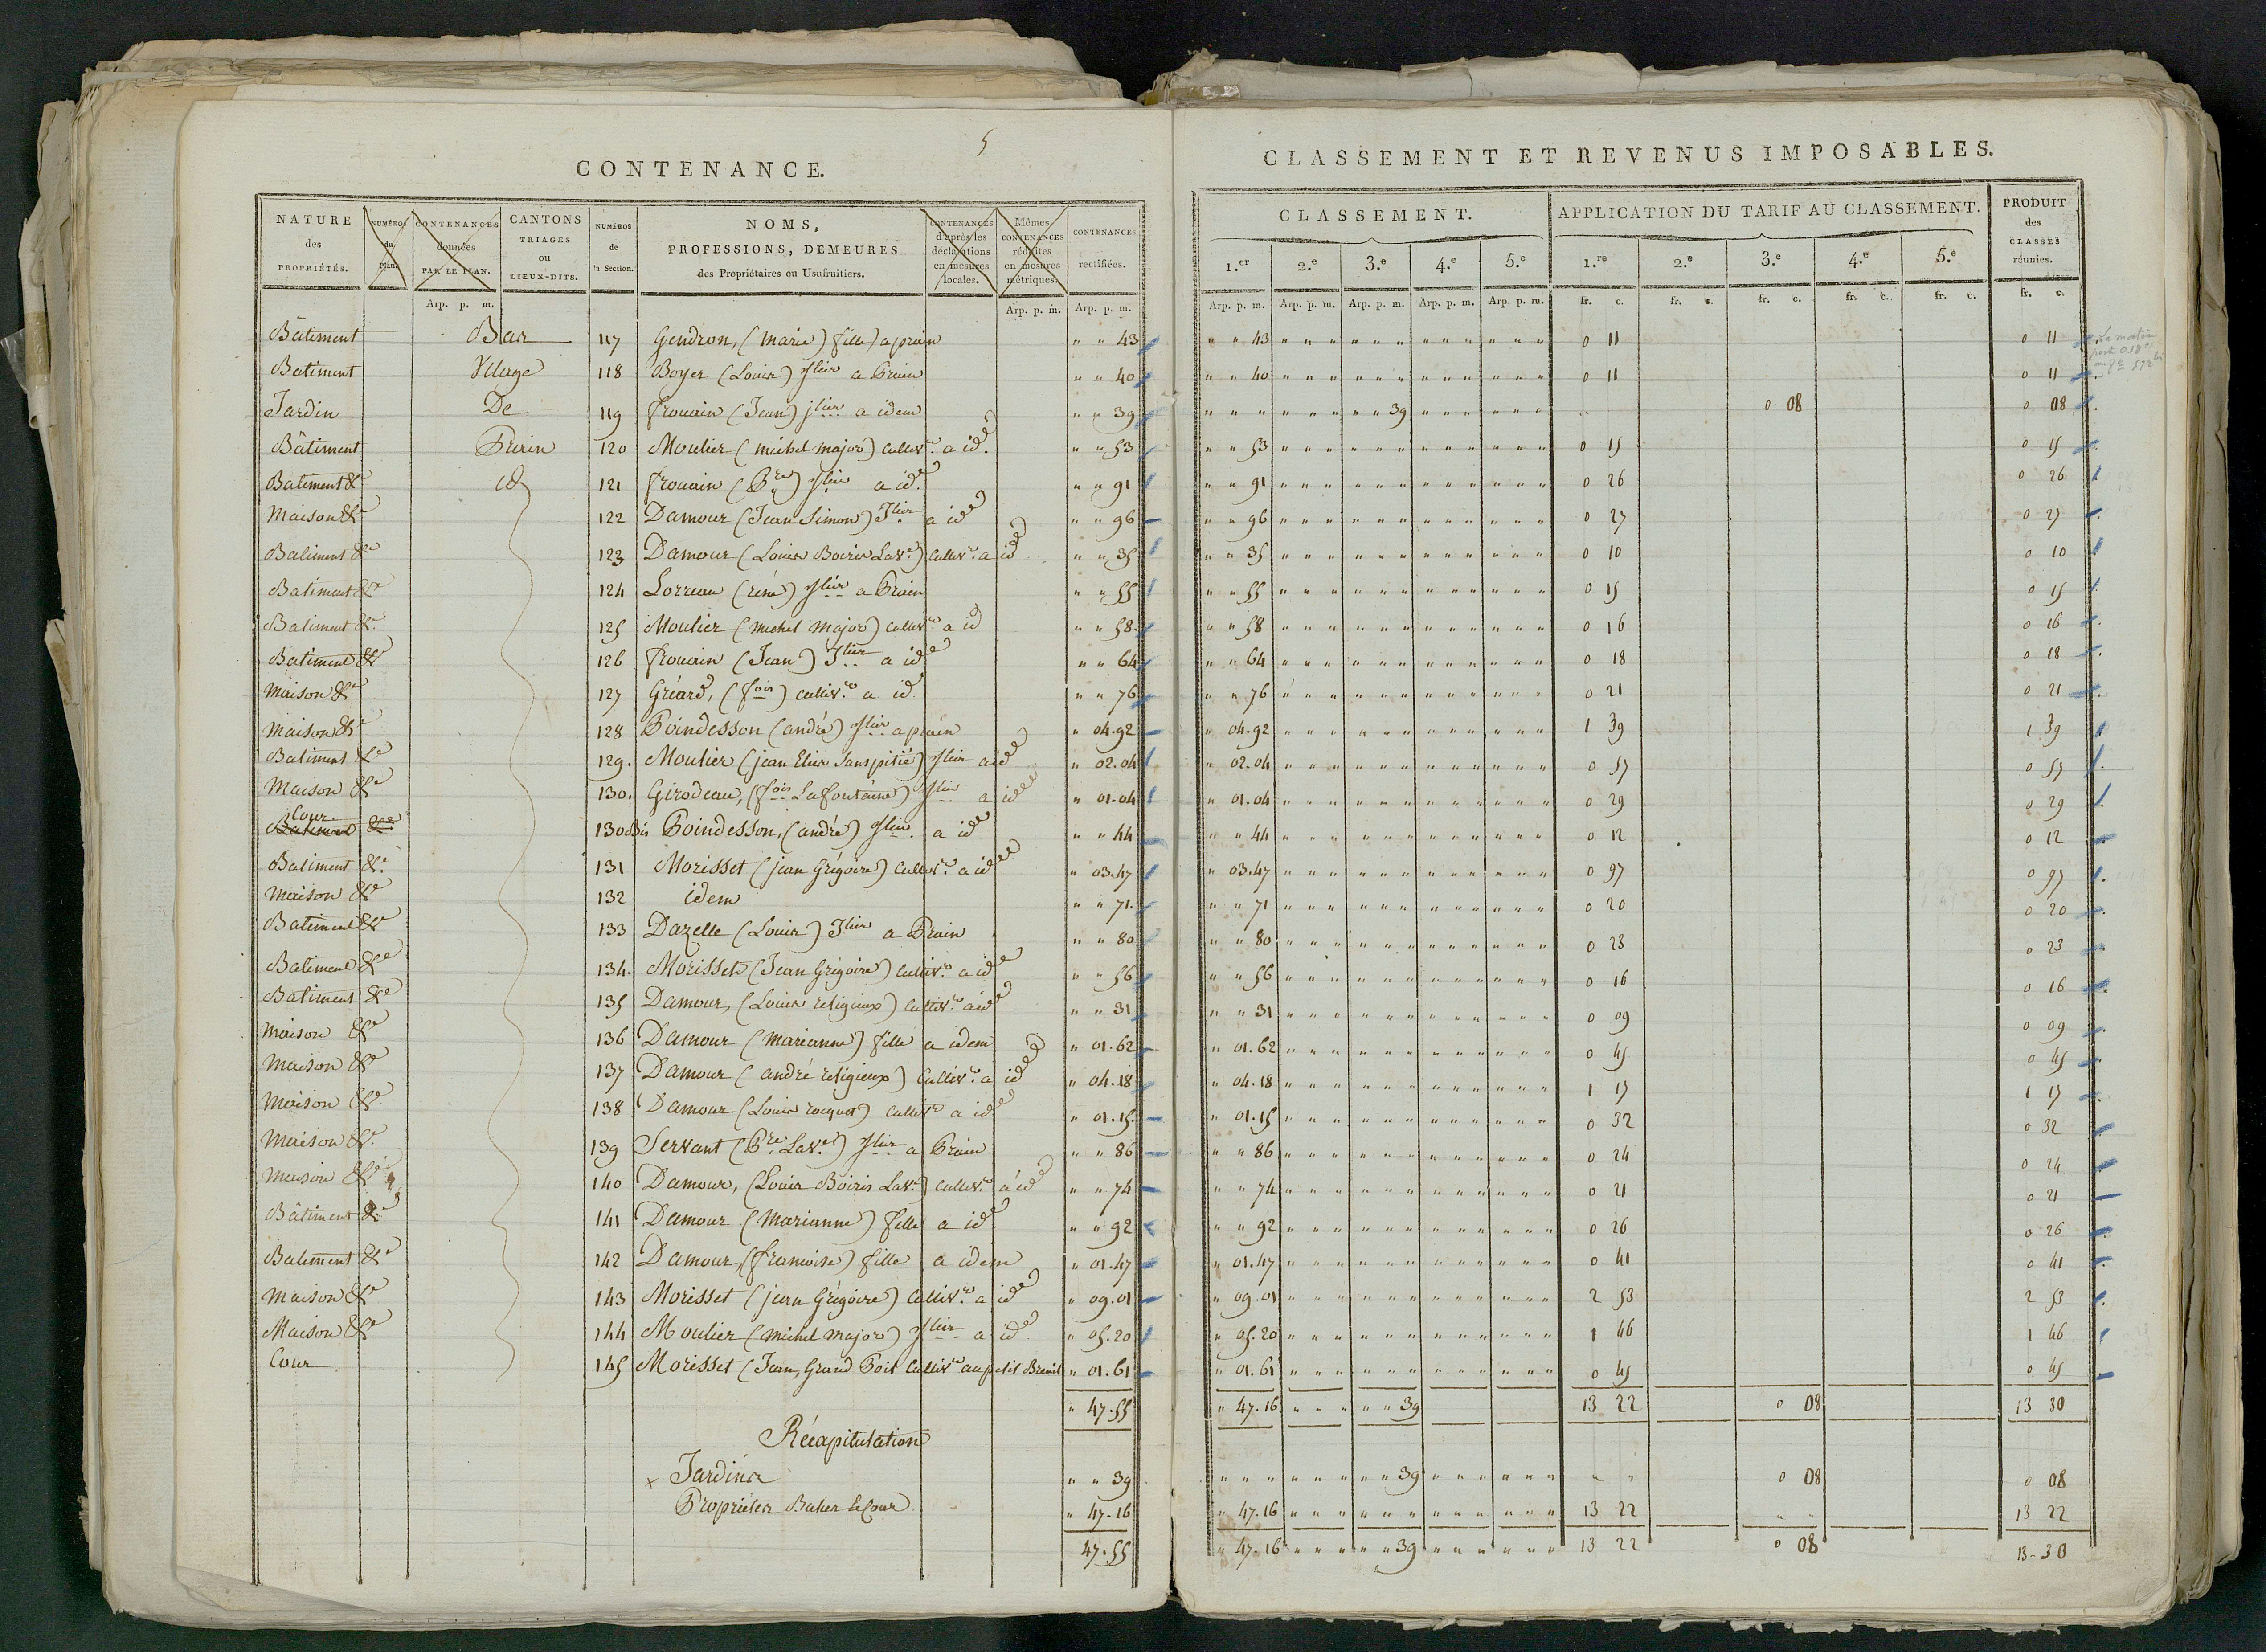 5
CONTENANCE.
NATURE des PROPRIÉTÉS. NUMÉROS du Plan. CONTENANCES données PAR LE PLAN. CANTONS TRIAGES ou LIEUX-DITS. NUMÉROS de la Section. NOMS, PROFESSIONS, DEMEURES des Propriétaires ou Usufruitiers. CONTENANCES d'après les déclarations en mesures locales. Mêmes CONTENANCES réduites en mesures métriques. CONTENANCES rectifiées.
Arp. p. m. Arp. p. m. Arp. p. m.
Bâtiment Bas 117 Gendron, (Marie) fille a prain " " 43
Batiment Vilage 118 Boyer (Louis) Jlier a Prain " " 40
Jardin De 119 frouain (Jean) jlier a idem " " 39
Bâtiment Prain 120 Moulier (michel major) cultivr. a id. " " 53
Batiment &c id 121 frouain (Pre) Jlier a id. " " 91
Maison &c 122 Damour (Jean Simon) Jlier a id " " 96
Batiment &c 123 Damour (Louis Boiris Lav.) Cultivr. a id " " 35
Batiment &c 124 Lorreau (réné) Jlier a Prain " " 55
Batiment &c. 125 Moulier (michel Major) cultivr a id " " 58.
Batiment &c 126 frouain (Jean) Jlier a id " " 64
Maison &c 127 Gréard, (fois) cultivr a id. " " 76
Maison &c 128 Poindesson (andré) Jlier a prain " 04.92
Batiment &c 129. Moulier (jean Elie Sanspitié) Jlier a id " 02.04
Maison &c 130. Girodeau, (fois Lafontaine) Jlier a id " 01.04
Cour
Batiment &c. 130 Bis Poindesson, (andré) Jlier a id " " 44
Batiment &c. 131 Morisset (jean Grégoire) Cultivr. a id " 03.47
Maison &c 132 idem " " 71.
Batiment &c 133 Dazelle (Louis) Jlier a Prain " " 80
Batiment &c 134. Morisset (Jean Grégoire) Cultivr. a id " " 56
Batiment &c 135 Damour, (Louis religieux) cultivr. a id " " 31
Maison &c 136 Damour (Marianne) fille a idem " 01.62
Maison &c 137 Damour (andré religieux) Cultivr. a id " 04.18
Maison &c 138 Damour (Louis rocquet) cultivr a id " 01.15.
Maison &c. 139 Servant (Pre Lav.) Jlier a Prain " " 86
Maison &c 140 Damour, (Louis Boiris Lav.) cultivr. a id " " 74
Bâtiment &c 141 Damour (Marianne) fille a id " " 92
Batiment &c 142 Damour, (francoise) fille a idem " 01.47
Maison &c 143 Morisset (jean Grégoire) Cultivr. a id " 09.01
Maison &c 144 Moulier (michel major) Jlier a id. " 05.20
Cour 145 Morisset (Jean, Grand Bois Cultivr au petit Breuil " 01.61
" 47.55
Récapitulation
x Jardins " " 39
Propriétés Baties et Cour " 47.16
47.55
CLASSEMENT ET REVENUS IMPOSABLES.
CLASSEMENT. APPLICATION DU TARIF AU CLASSEMENT. PRODUIT des CLASSES réunies.
1.er 2.e 3.e 4.e 5.e 1.re 2.e 3.e 4.e 5.e
Arp. p. m. Arp. p. m. Arp. p. m. Arp. p. m. Arp. p. m. fr. c. fr. c. fr. c. fr. c. fr. c. fr. c.
" " 43 " " " " " " " " " " " " 0 11 0 11
" " 40 " " " " " " " " " " " " 0 11 0 11
" " " " " " " " 39 " " " " " " 0 08 0 08
" " 53 " " " " " " " " " " " " 0 15 0 15
" " 91 " " " " " " " " " " " " 0 26 0 26
" " 96 " " " " " " " " " " " " 0 27 0 27
" " 35 " " " " " " " " " " " " 0 10 0 10
" " 55 " " " " " " " " " " " " 0 15 0 15
" " 58 " " " " " " " " " " " " 0 16 0 16
" " 64 " " " " " " " " " " " " 0 18 0 18
" " 76 " " " " " " " " " " " " 0 21 0 21
" 04.92 " " " " " " " " " " " " 1 39 1 39
" 02.04 " " " " " " " " " " " " 0 57 0 57
" 01.04 " " " " " " " " " " " " 0 29 0 29
" " 44 " " " " " " " " " " " " 0 12 0 12
" 03.47 " " " " " " " " " " " " 0 97 0 97
" " 71 " " " " " " " " " " " " 0 20 0 20
" " 80 " " " " " " " " " " " " 0 23 0 23
" " 56 " " " " " " " " " " " " 0 16 0 16
" " 31 " " " " " " " " " " " " 0 09 0 09
" 01.62 " " " " " " " " " " " " 0 45 0 45
" 04.18 " " " " " " " " " " " " 1 17 1 17
" 01.15 " " " " " " " " " " " " 0 32 0 32
" " 86 " " " " " " " " " " " " 0 24 0 24
" " 74 " " " " " " " " " " " " 0 21 0 21
" " 92 " " " " " " " " " " " " 0 26 0 26
" 01.47 " " " " " " " " " " " " 0 41 0 41
" 09.01 " " " " " " " " " " " " 2 53 2 53
" 05.20 " " " " " " " " " " " " 1 46 1 46
" 01.61 " " " " " " " " " " " " 0 45 0 45
" 47.16 " " " " " 39 13 22 0 08 13 30
" " " " " " " " 39 " " " " " " " " 0 08 0 08
" 47.16 " " " " " " " " " " " " 13 22 " " 13 22
" 47.16 " " " " " 39 " " " " " " 13 22 0 08 13-30